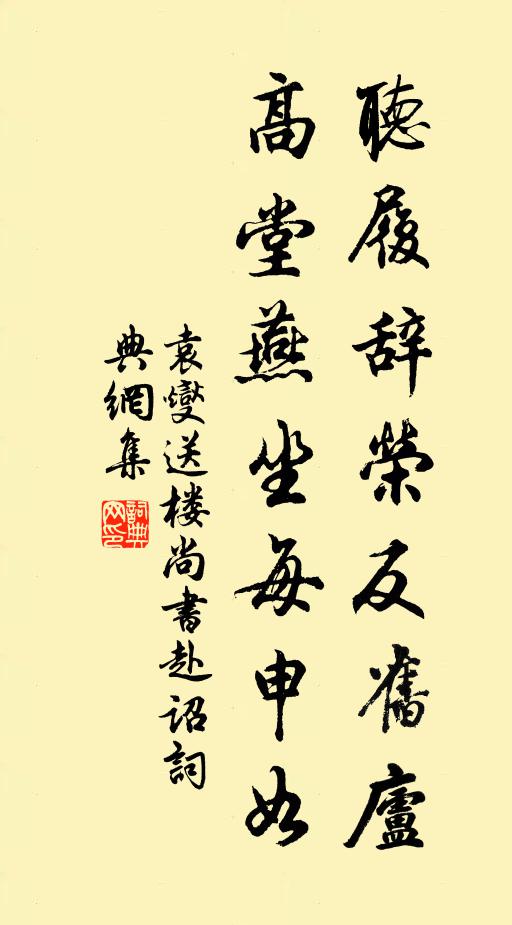 聽履辞榮反舊廬
高堂燕坐每申如
袁燮送楼尚書赴詔詞
典網集
詞典
网印